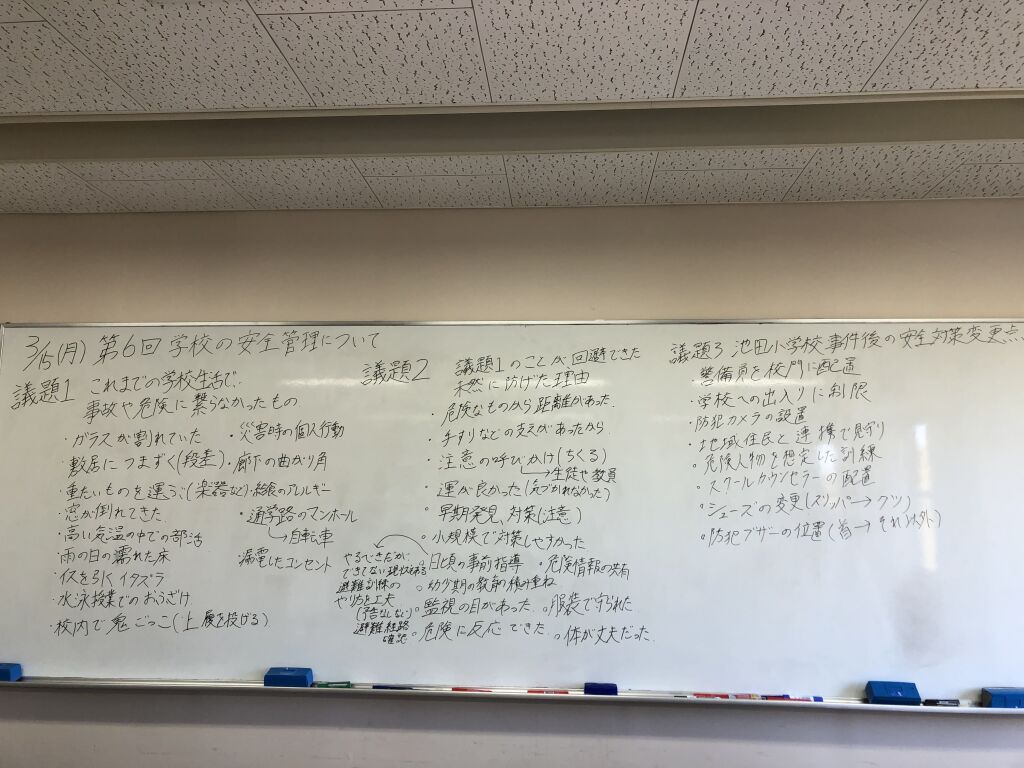 3/15(月) 第6回 学校の安全管理について
議題1 これまでの学校生活で、
事故や危険に繋らなかったもの
・ガラスが割れていた
・敷居につまずく(段差)
・重たいものを運ぶ(楽器など)
・窓が倒れてきた
・高い気温の中での部活
・雨の日の濡れた床
・イスを引くイタズラ
・水泳授業でのおふざけ
・校内で鬼ごっこ(上履を投げる)
・災害時の個人行動
・廊下の曲がり角
・給食のアレルギー
・通学路のマンホール
→自転車
・漏電したコンセント
議題2 議題1のことが回避できた
未然に防げた理由
・危険なものから距離があった
・手すりなどの支えがあったから
・注意の呼びかけ(ちくる)
→生徒や教員
・運が良かった(気づかれなかった)
・早期発見、対策(注意)
・小規模で対策しやすかった
○日頃の事前指導
○危険情報の共有
やるべきだが、
できてない
避難訓練の
やり方を工夫
(予告なしなど)
避難経路
確認
○幼少期の教育の積み重ね
○監視の目があった
○服装で守られた
○危険に反応できた
○体が丈夫だった
議題3 池田小学校事件後の安全対策変更点
・警備員を校門に配置
・学校への出入りに制限
・防犯カメラの設置
・地域住民と連携で見守り
○危険人物を想定した訓練
○スクールカウンセラーの配置
○シューズの変更(スリッパ→クツ)
○防犯ブザーの位置(首→それ以外)